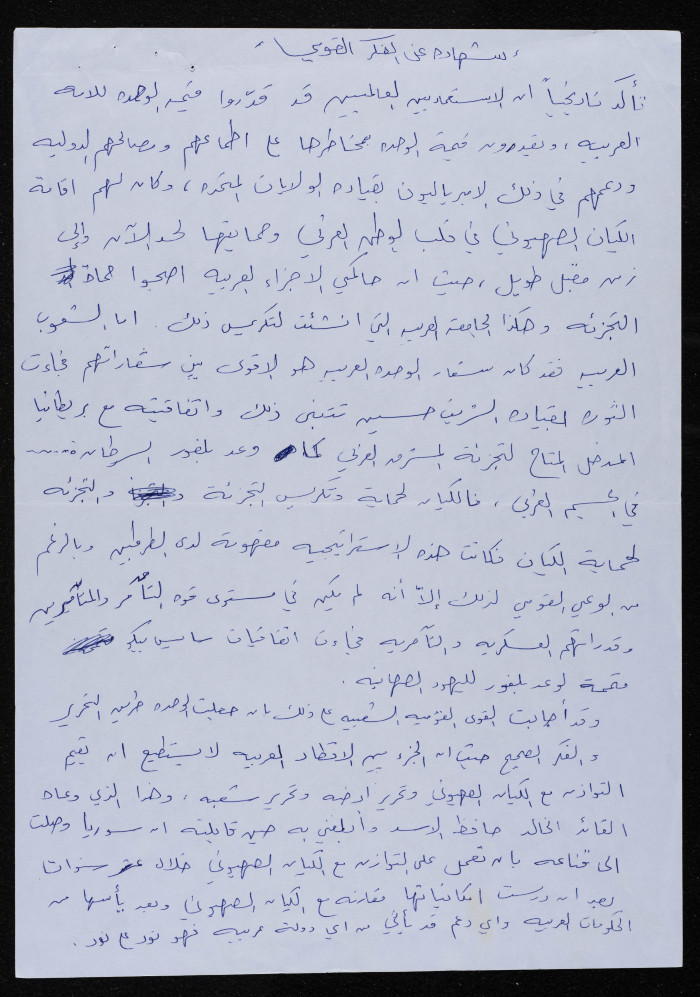 "شهادة عن الفكر القومي"
تأكد تاريخياً ان الاستعماريين العالميين قد قدّروا قيمة الوحده للامه
العربيه ، ويقدرون قيمة الوحده بمخاطرها على اطماعهم ومصالحهم الدوليه
ودعمهم في ذلك الامبرياليون بقياده الولايات المتحده ، وكان لهم اقامة
الكيان الصهيوني في قلب الوطن العربي وحمايتها لحد الآن وإلى
زمن مقبل طويل ، حيث ان حاكمي الاجزاء العربيه اصبحوا حماة
التجزئه وهكذا الجامعه العربيه التي انشئت لتكريس ذلك . اما الشعوب
العربيه فقد كان شعار الوحده العربيه هو الاقوى بين شعاراتهم فجاءت
الثوره بقياده الشريف حسين تتبنى ذلك واتفاقيته مع بريطانيا
المدخل المتاح لتجزئة المشرق العربي كما وعد بلفور السرطان .....
في الجسم العربي ، فالكيان لحماية وتكريس التجزئة والتجزئه
لحماية الكيان فكانت هذه الاستراتيجيه مفهومة لدى الطرفين وبالرغم
من الوعي القومي لذلك إلاّ أنه لم يكن في مستوى قوه التآمر والمتآمرين
وقدراتهم العسكريه والتآمريه فجاءت اتفاقيات سايس بيكو
متممة لوعد بلفور لليهود الصهاينه .
وقد أجابت القوى القوميه الشعبيه على ذلك بان جعلت الوحده طريق التحرير
والفكر الصحيح حيث ان الجزء من الاقطار العربيه لا يستطيع ان يقيم
التوازن مع الكيان الصهيوني وتحرير أرضه وتحرير شعبه ، وهذا الذي وعاه
القائد الخالد حافظ الاسد وأبلغني به حين قابلته ان سوريا وصلت
الى قناعه بان تعمل على التوازن مع الكيان الصهيوني خلال عشر سنوات
بعد ان درست امكانياتها مقارنه مع الكيان الصهيوني وبعد يأسها من
الحكومات العربيه واي دعم قد يأتي من اي دولة عربيه فهو نور على نور .